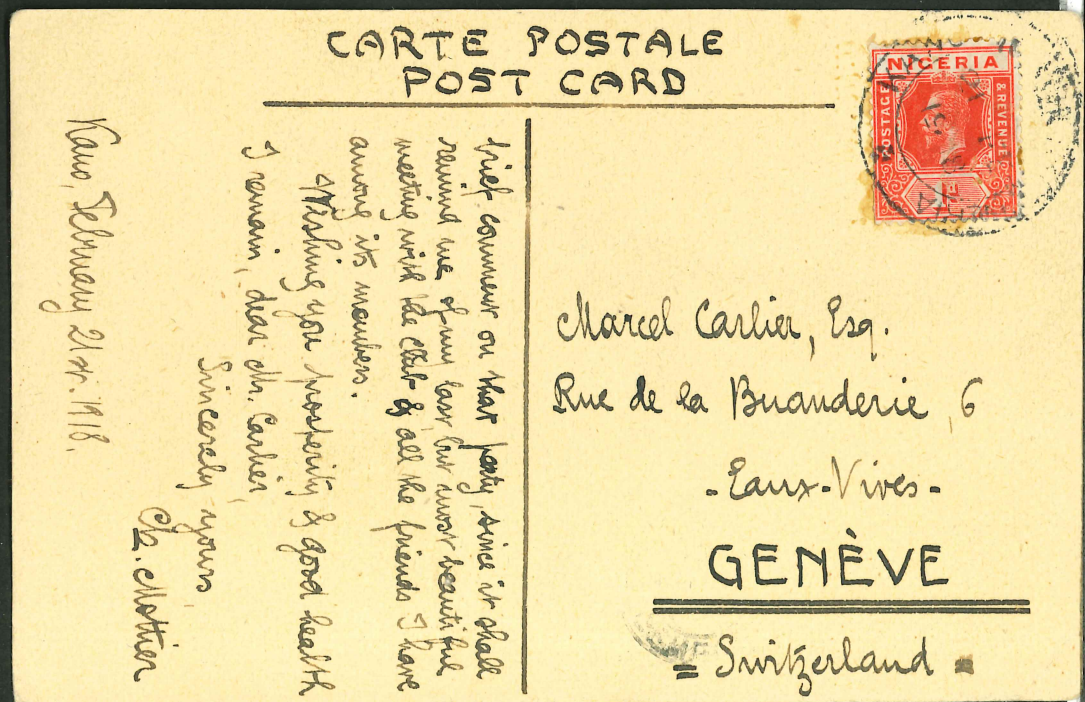 CARTE POSTALE
POST CARD
NIGERIA
POSTAGE
& REVENUE
1d
brief comment on that party, since it shall
remind me of my last but most beautiful
meeting with the club & all the friends I have
among its members.
Wishing you prosperity & good health
I remain, dear Mr. Carlier,
Sincerely yours,
Ch. Mottier
Kano, February 21st. 1918.
Marcel Carlier, Esq.
Rue de la Buanderie, 6
- Eaux-Vives -
GENÈVE
= Switzerland =